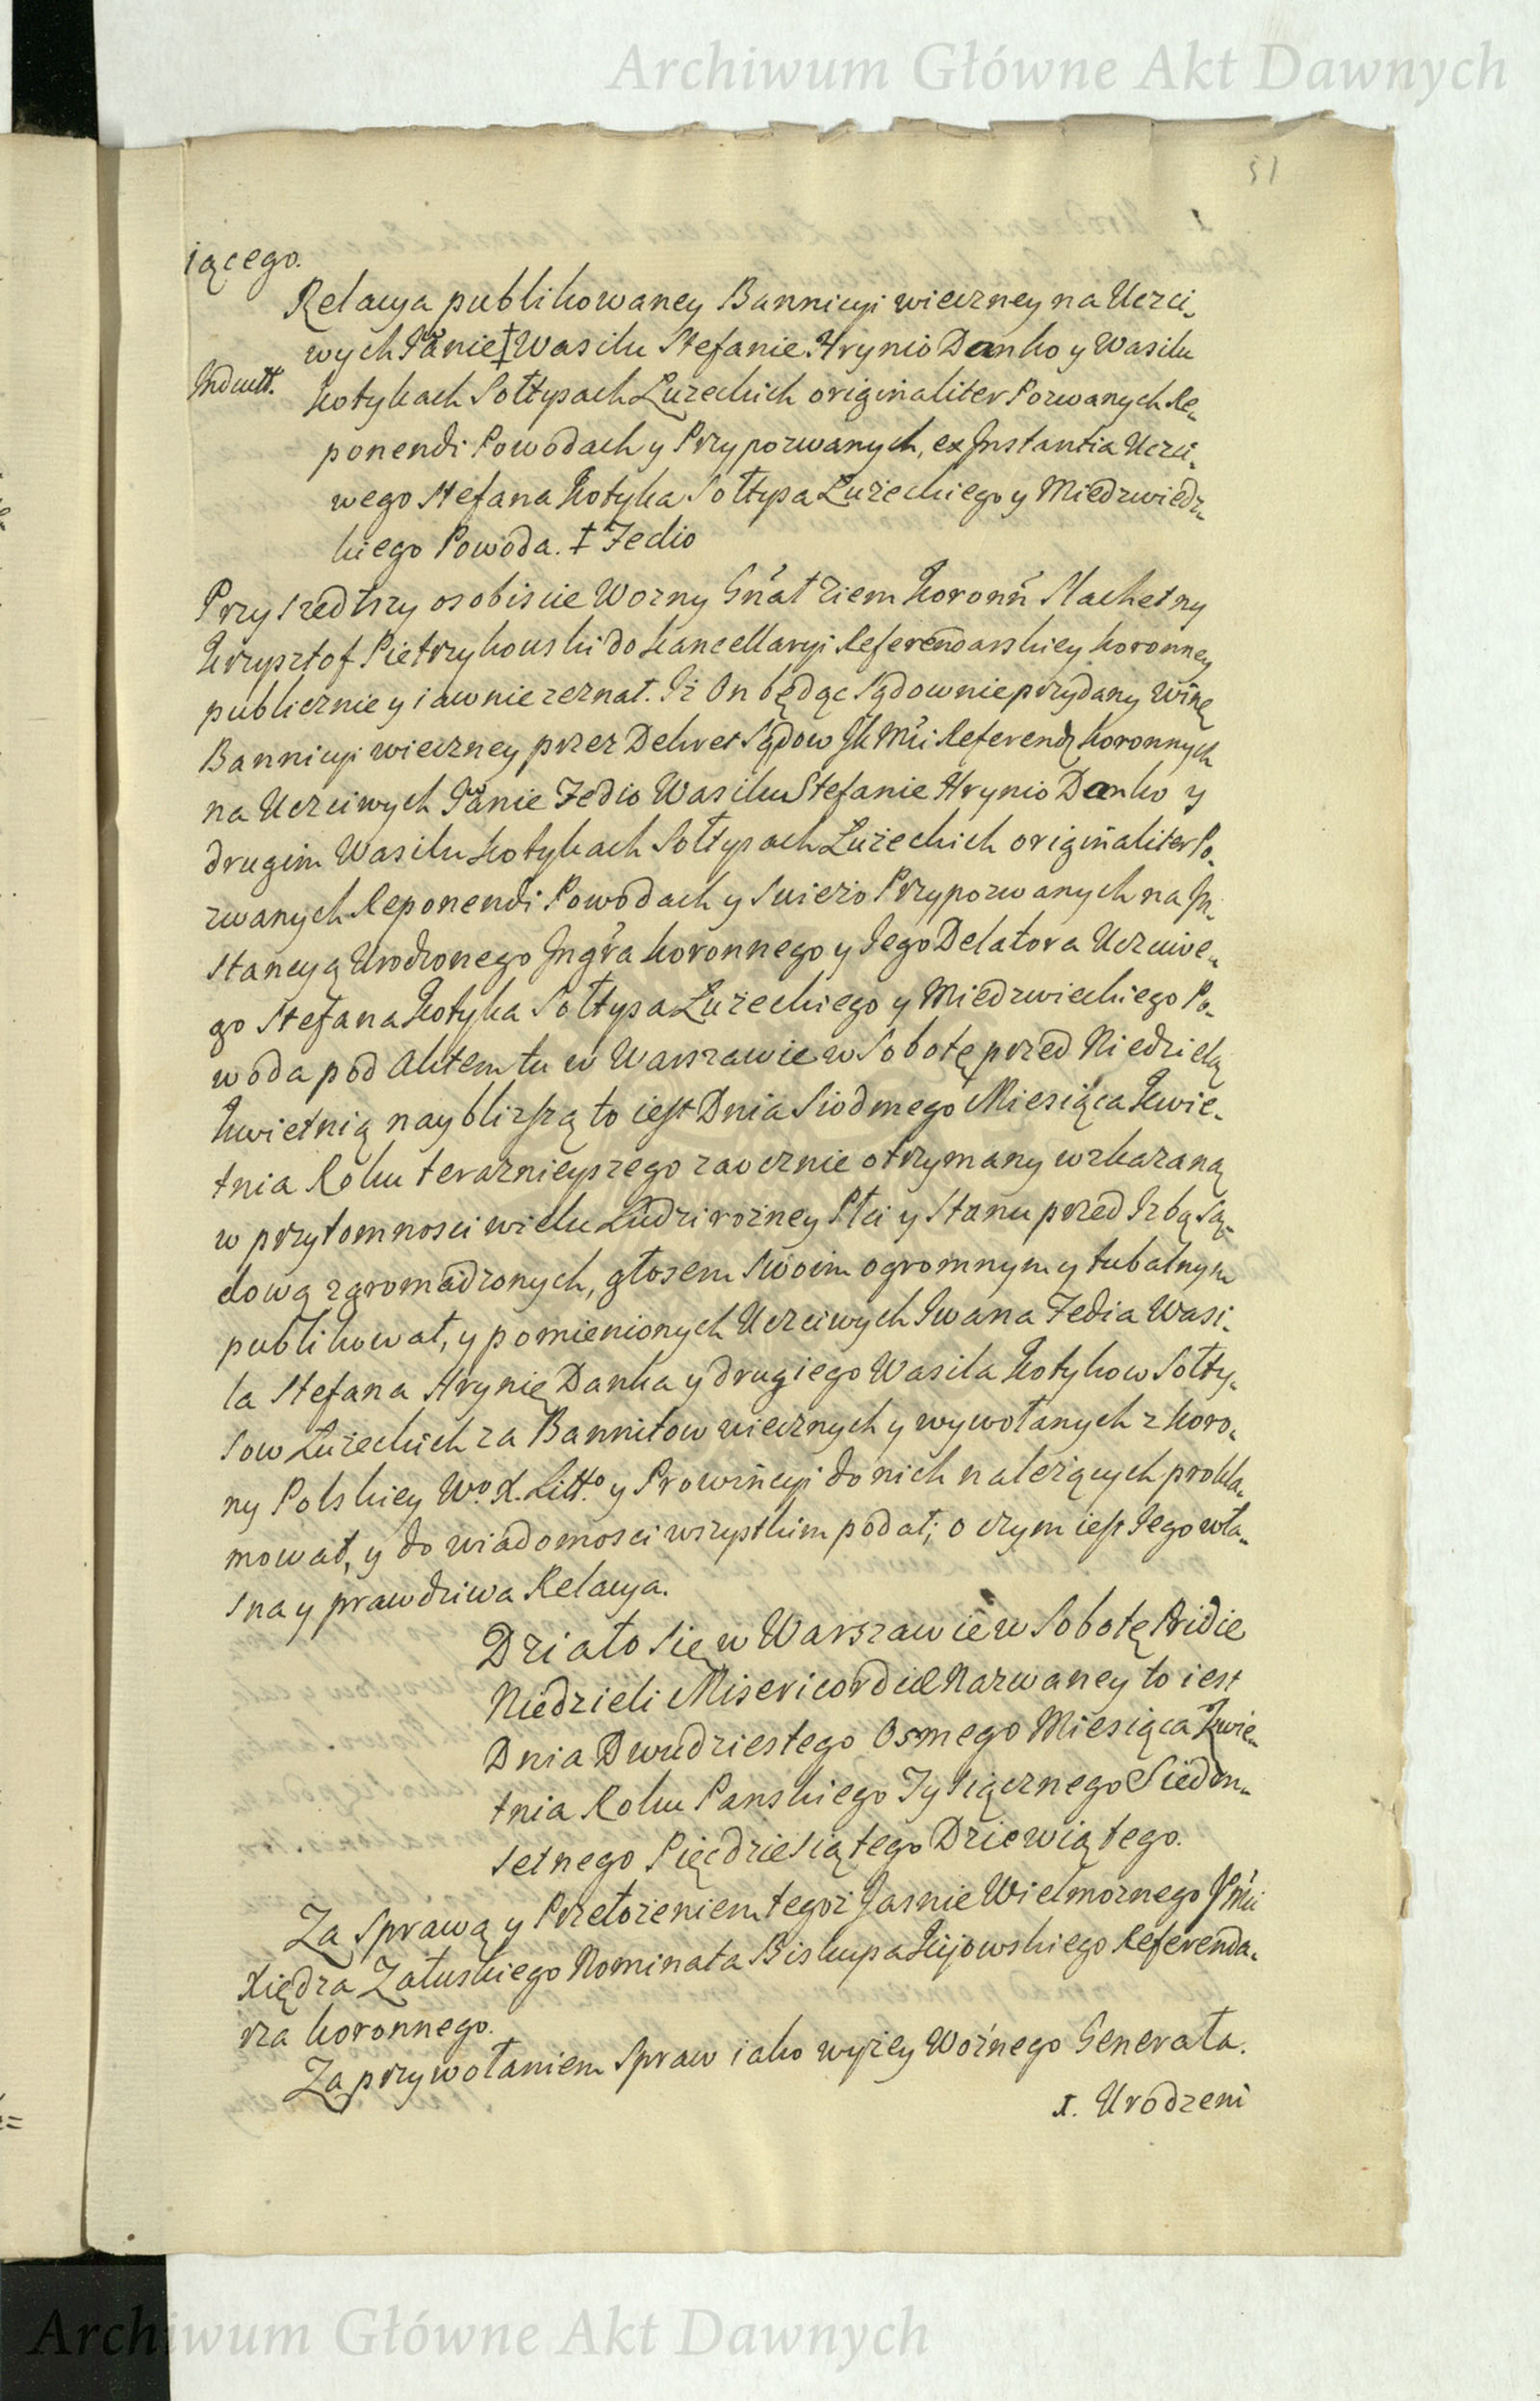 Archiwum Główne Akt Dawnych
51
iącego.
Relacya publikowaney Bannicyi wieczney na Uczci-
wych Iwanie ‡ Wasilu Stefanie Hrynio Danko y Wasilu
Indult.
Kotykach Sołtysach Łużeckich originaliter Pozwanych Re-
ponendi Powodach y Przypozwanych, ex Instantia Uczci-
wego Stefana Kotyka Sołtysa Łużeckiego y Miedzwiedz-
kiego Powoda. ‡ Fedio
Przyszedłszy osobiscie Wozny Gńał Ziem Koronń Slachetny
Krzysztof Pietrzykowski do Kancellaryi Referendarskiey Koronney
publicznie y iawnie zeznał. Iż On będąc Sądownie przydany Winę
Bannicyi wieczney przez Dekret Sądow Ich Mći Referend Koronnych
na Uczciwych Iwanie Fedio Wasilu Stefanie Hrynio Danko y
drugim Wasilu Kotykach Sołtysach Łużeckich originaliter Po-
zwanych Reponendi Powodach y Swiezo Przypozwanych na In-
stancyą Urodzonego Ingra Koronnego y Iego Delatora Uczciwe-
go Stefana Kotyka Sołtysa Łużeckiego y Miedzwieckiego Po-
woda pod Aktem tu w Warszawie w Sobotę przed Niedzielą
Kwietnią naybliższą to iest Dnia Siodmego Miesiąca Kwie-
tnia Roku teraznieyszego zaocznie otrzymany wzkazaną
w przytomnosci wielu Ludzi rożney Płci y Stanu przed Izbą Są-
dową zgromadzonych, głosem Swoim ogromnym y tubalnym
publikował, y pomienionych Uczciwych Iwana Fedia Wasi-
la Stefana Hrynię Danka y drugiego Wasila Kotykow Sołty-
sow Łużeckich za Bannitow wiecznych y wywołanych z Koro-
ny Polskiey Wo. X. Litto. y Prowincyi do nich należących prokla-
mował, y do wiadomosci wszystkim podał; o czym iest Iego wła-
sna y prawdziwa Relacya.
Działo Się w Warszawie w Sobotę Pridie
Niedzieli Misericordiæ Nazwaney to iest
Dnia Dwudziestego Osmego Miesiąca Kwie-
tnia Roku Panskiego Tysiącznego Siedm-
setnego Pięcdziesiątego Dziewiątego.
Za Sprawą y Przełożeniem tegoż Jasnie Wielmoznego Jmći
Xiędza Załuskiego Nominata Biskupa Kijowskiego Referenda-
rza Koronnego.
Za przywołaniem Spraw iako wyżey Woźnego Generała.
1. Urodzeni
Archiwum Główne Akt Dawnych